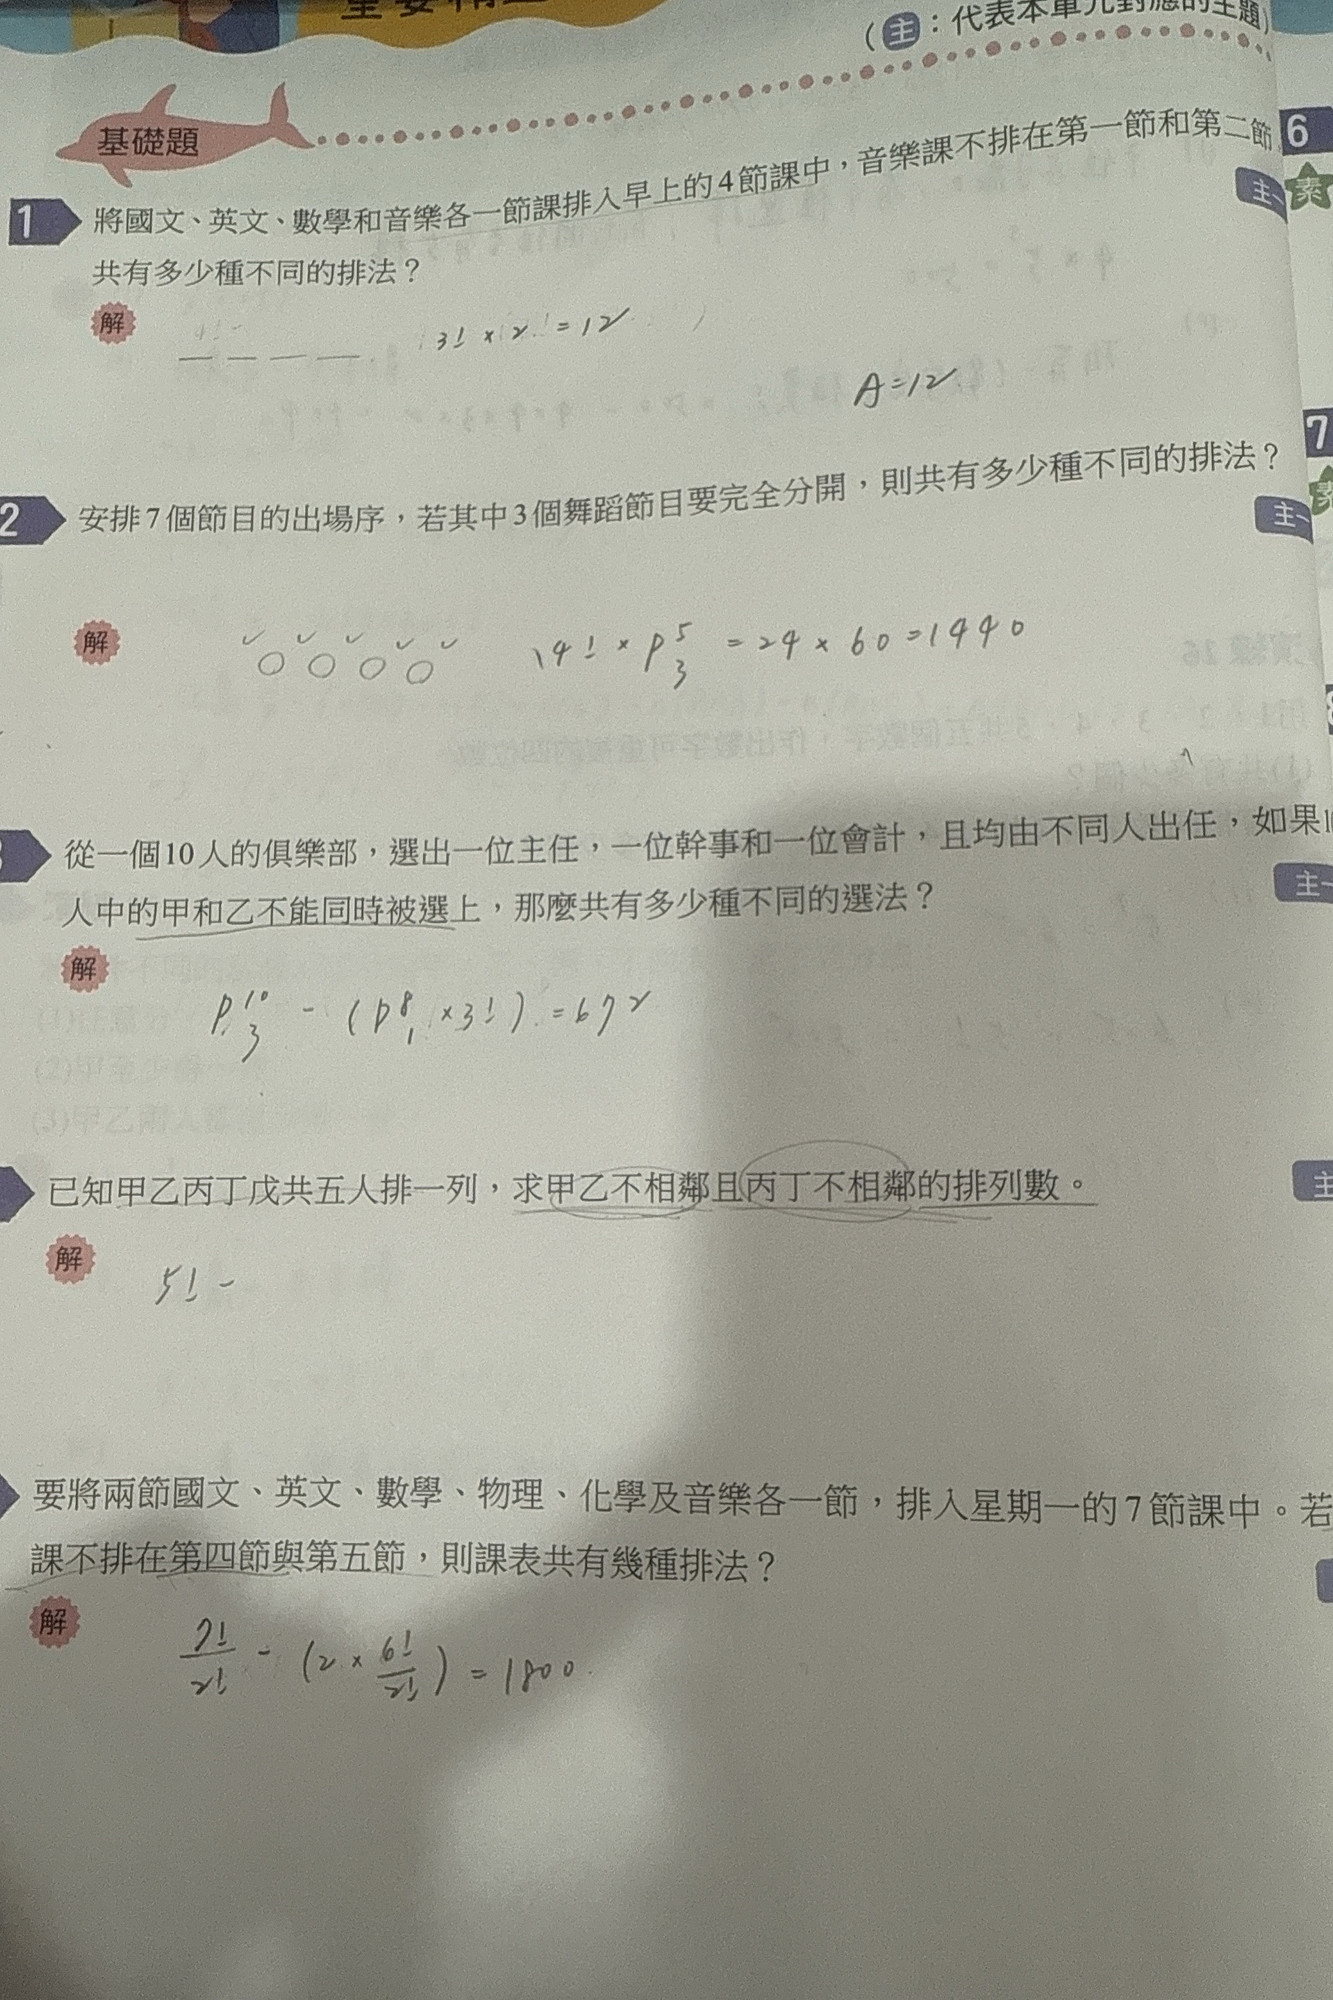 (主：代表本單元對應的主題)
基礎題
6
素
1 將國文、英文、數學和音樂各一節課排入早上的4節課中，音樂課不排在第一節和第二節
主一
共有多少種不同的排法？
解 3! × 2 = 12
A=12
7
2 安排7個節目的出場序，若其中3個舞蹈節目要完全分開，則共有多少種不同的排法？
主一
解 4! × P⁵₃ = 24 × 60 = 1440
從一個10人的俱樂部，選出一位主任，一位幹事和一位會計，且均由不同人出任，如果
主一
人中的甲和乙不能同時被選上，那麼共有多少種不同的選法？
解
P¹⁰₃ - (P⁸₁ × 3!) = 672
已知甲乙丙丁戊共五人排一列，求甲乙不相鄰且丙丁不相鄰的排列數。
主
解
5! -
要將兩節國文、英文、數學、物理、化學及音樂各一節，排入星期一的7節課中。若
課不排在第四節與第五節，則課表共有幾種排法？
解
7!/2! - (2 × 6!/2!) = 1800